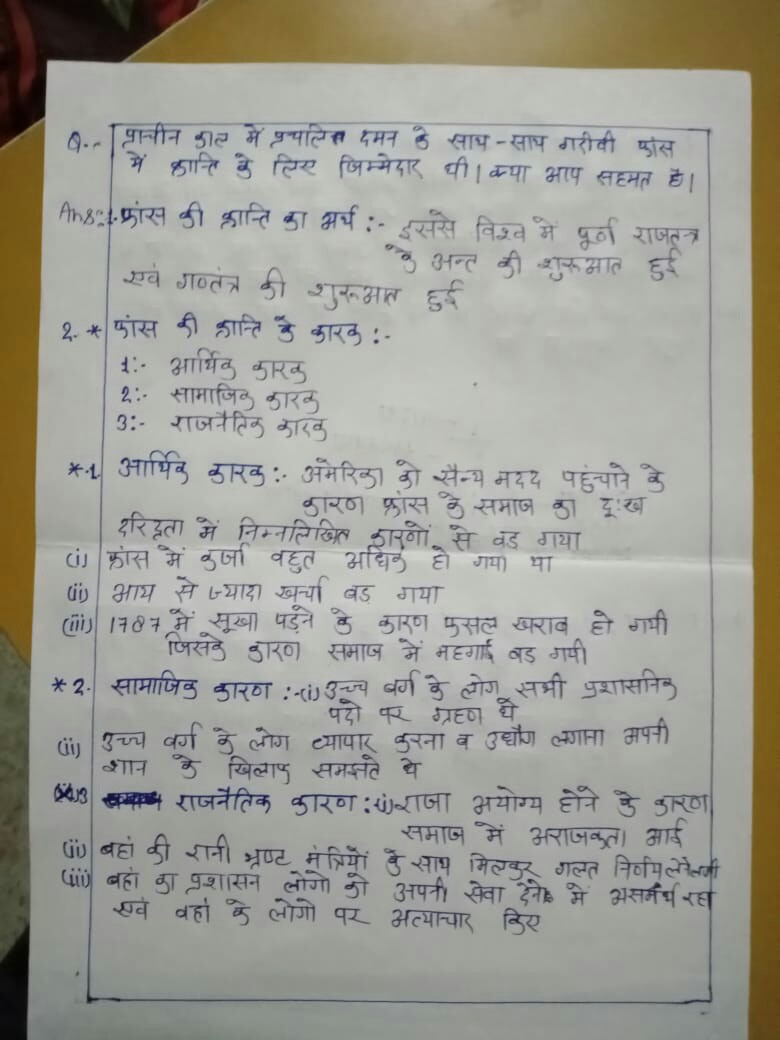 Q.- प्राचीन काल में प्रचलित दमन के साथ-साथ गरीबी फ्रांस
में क्रान्ति के लिए जिम्मेदार थी। क्या आप सहमत है।
Ans:-1. फ्रांस की क्रान्ति का अर्थ :- इससे विश्व में पूर्ण राजतन्त्र
के अन्त की शुरूआत हुई
एवं गणतंत्र की शुरूआत हुई
2.* फ्रांस की क्रान्ति के कारक :-
1:- आर्थिक कारक
2:- सामाजिक कारक
3:- राजनैतिक कारक
*.1 आर्थिक कारक:- अमेरिका को सैन्य मदद पहुंचाने के
कारण फ्रांस के समाज का दु:ख
दरिद्रता में निम्नलिखित कारणों से बड गया
(i) फ्रांस में कर्जा बहुत अधिक हो गया था
(ii) आय से ज्यादा खर्चा बड गया
(iii) 1787 में सूखा पड़ने के कारण फसल खराब हो गयी
जिसके कारण समाज में महगाई बड गयी
*2. सामाजिक कारण :-(i) उच्च वर्ग के लोग सभी प्रशासनिक
पदो पर ग्रहण थे
(ii) उच्च वर्ग के लोग व्यापार करना व उद्यौग लगाना अपनी
शान के खिलाफ समझते थे
3 राजनैतिक कारण :(i) राजा अयोग्य होने के कारण
समाज में अराजकता आई
(ii) वहां की रानी भ्रष्ट मंत्रियों के साथ मिलकर गलत निर्णय लेने लगी
(iii) वहां का प्रशासन लोगो को अपनी सेवा देने में असमर्थ रहा
एवं वहां के लोगो पर अत्याचार किए